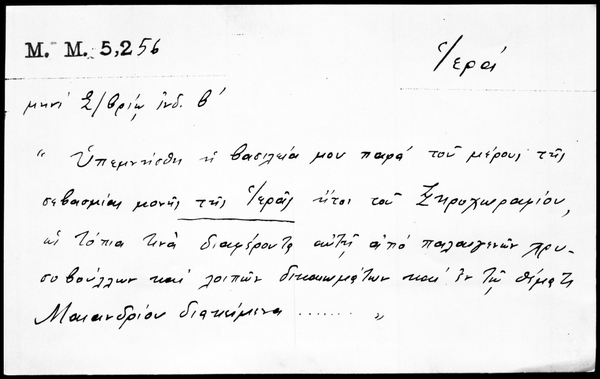 M. M. 5,256
Ἱερά
μηνί Σ/βρίῳ ἰνδ. β'
" Ὑπεμνήσθη ἡ βασιλεία μου παρά τοῦ μέρους τῆς
σεβασμίας μονῆς τῆς Ἱερᾶς ἤτοι τοῦ Ξηροχωραφίου,
ὡς τόπια τινὰ διαφέροντα αὐτῇ ἀπό παλαιγενῶν χρυ-
σοβούλλων καί λοιπῶν δικαιωμάτων καί ἐν τῷ θέματι
Μαιανδρίου διακείμενα ...... "